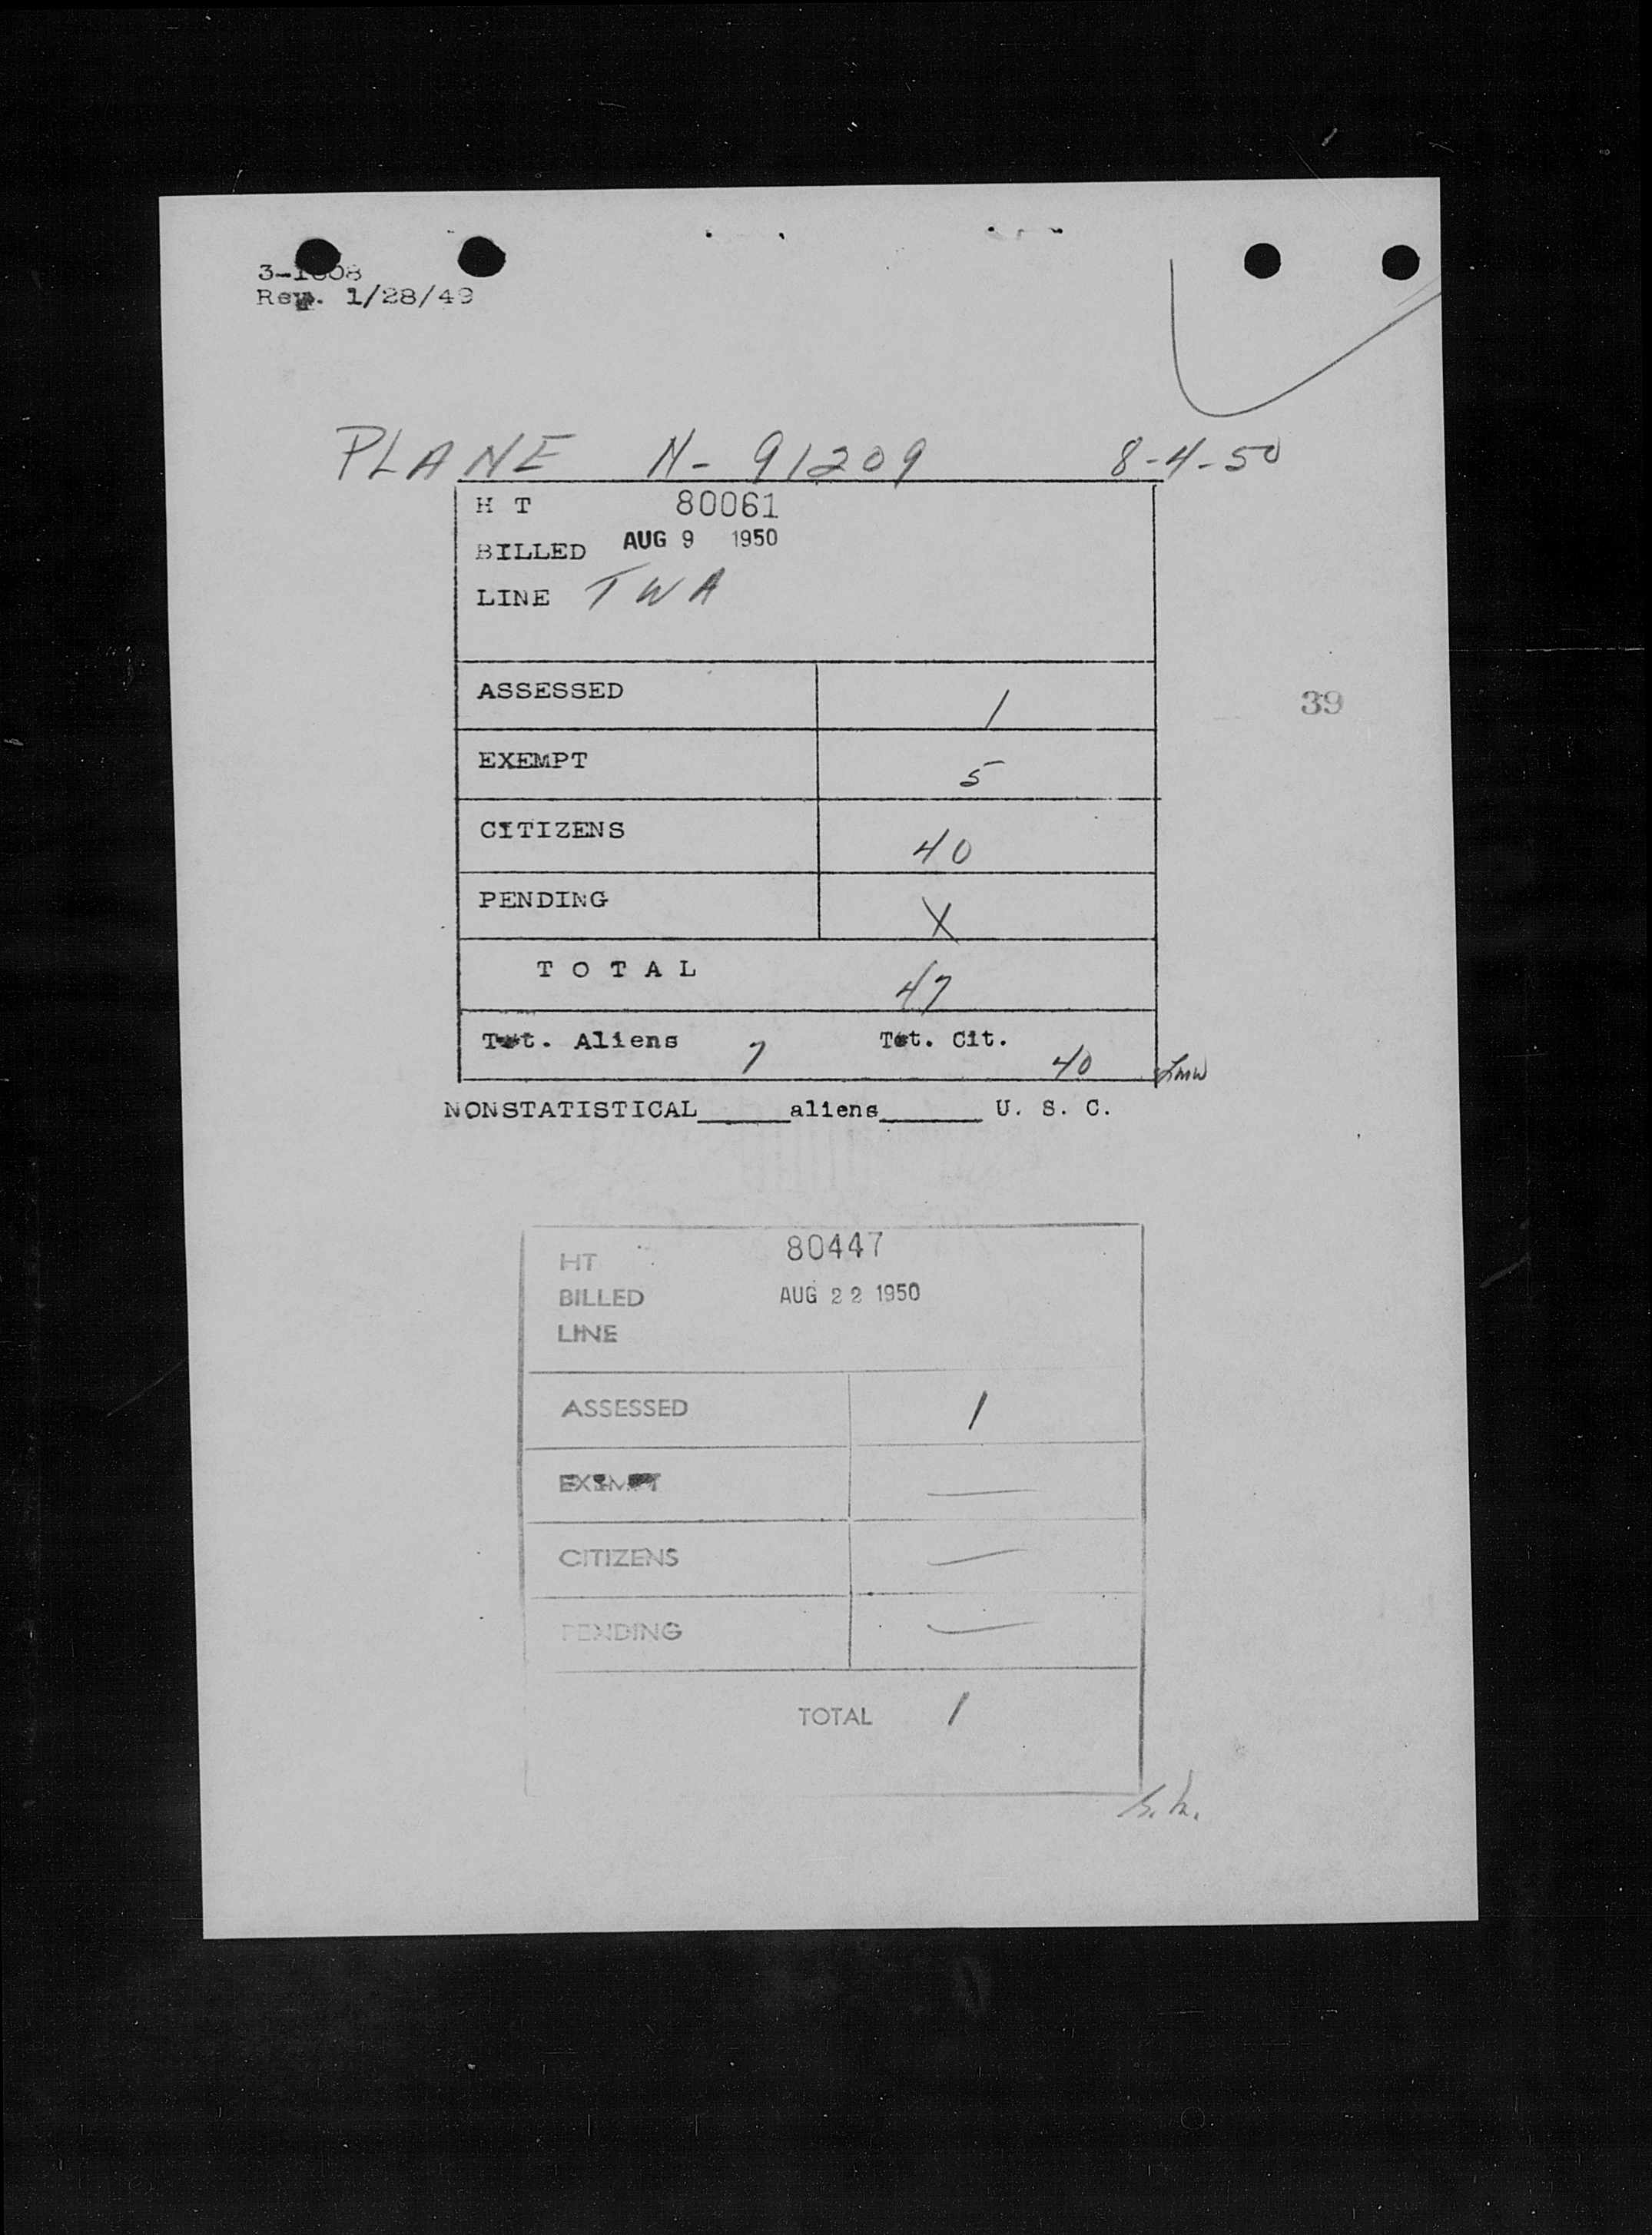 Rev. 1/28/49
PLANE N-91209 8-4-50
H T 80061
BILLED AUG 9 1950
LINE TWA
ASSESSED 1
39
EXEMPT 5
CITIZENS 40
PENDING X
T O T A L 47
Tot. Aliens 7 Tot. Cit. 40
NONSTATISTICAL_____aliens______ U. S. C.
HT 80447
BILLED AUG 22 1950
LINE
ASSESSED 1
EXEMPT —
CITIZENS —
PENDING —
TOTAL 1